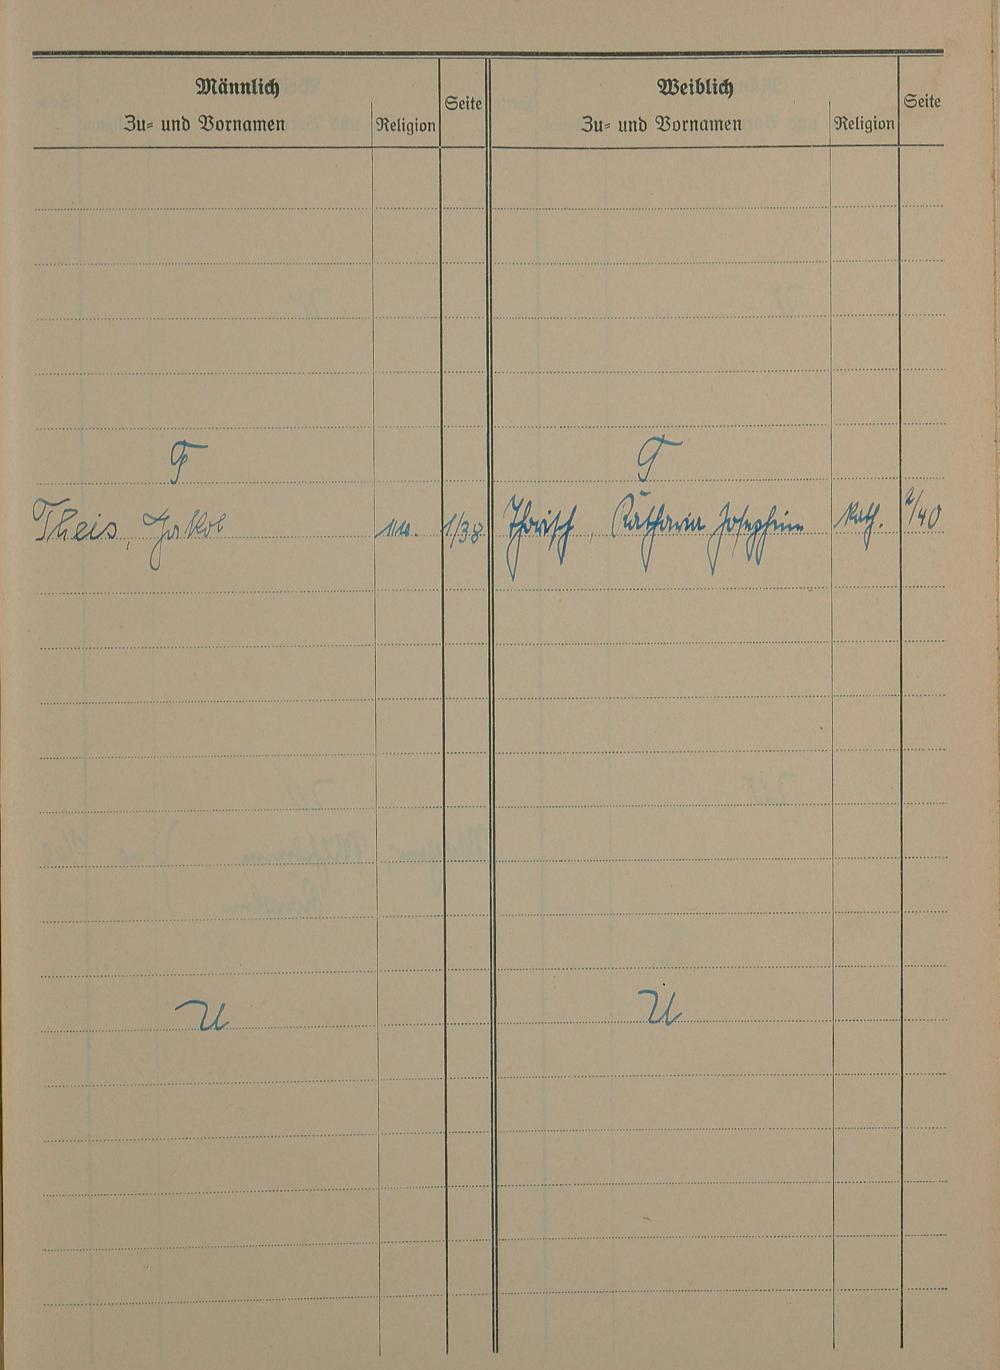 Männlich
Zu= und Vornamen
Religion
Seite
Weiblich
Zu= und Vornamen
Religion
Seite
T
T
Theis, Jakob
1/38
Thörisch, Katharia Josephine
kath.
2/40
U
U